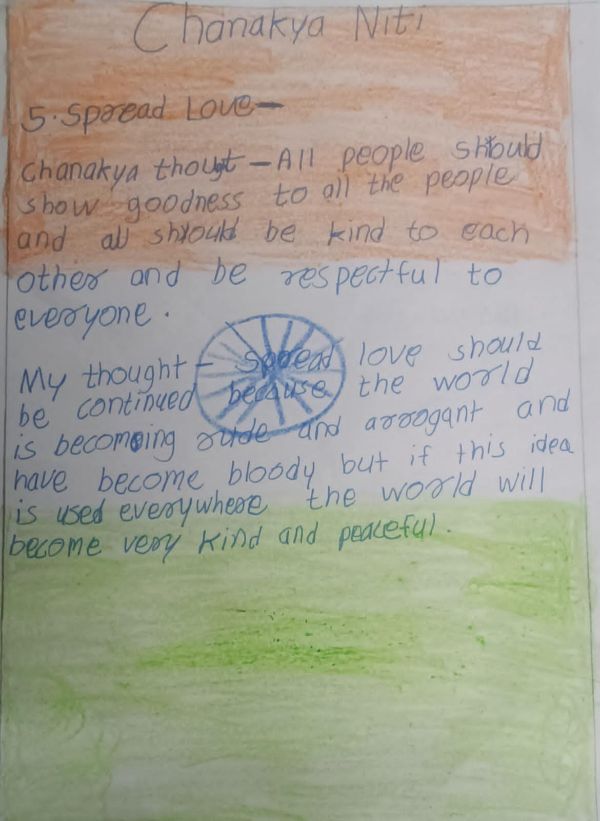 Chanakya Niti
5. Spread Love-
Chanakya thougt - All people should
show goodness to all the people
and all should be kind to each
other and be respectful to
everyone.
My thought - spread love should
be continued because the world
is becomeing rude and arrogant and
have become bloody but if this idea
is used everywhere the world will
become very kind and peaceful.